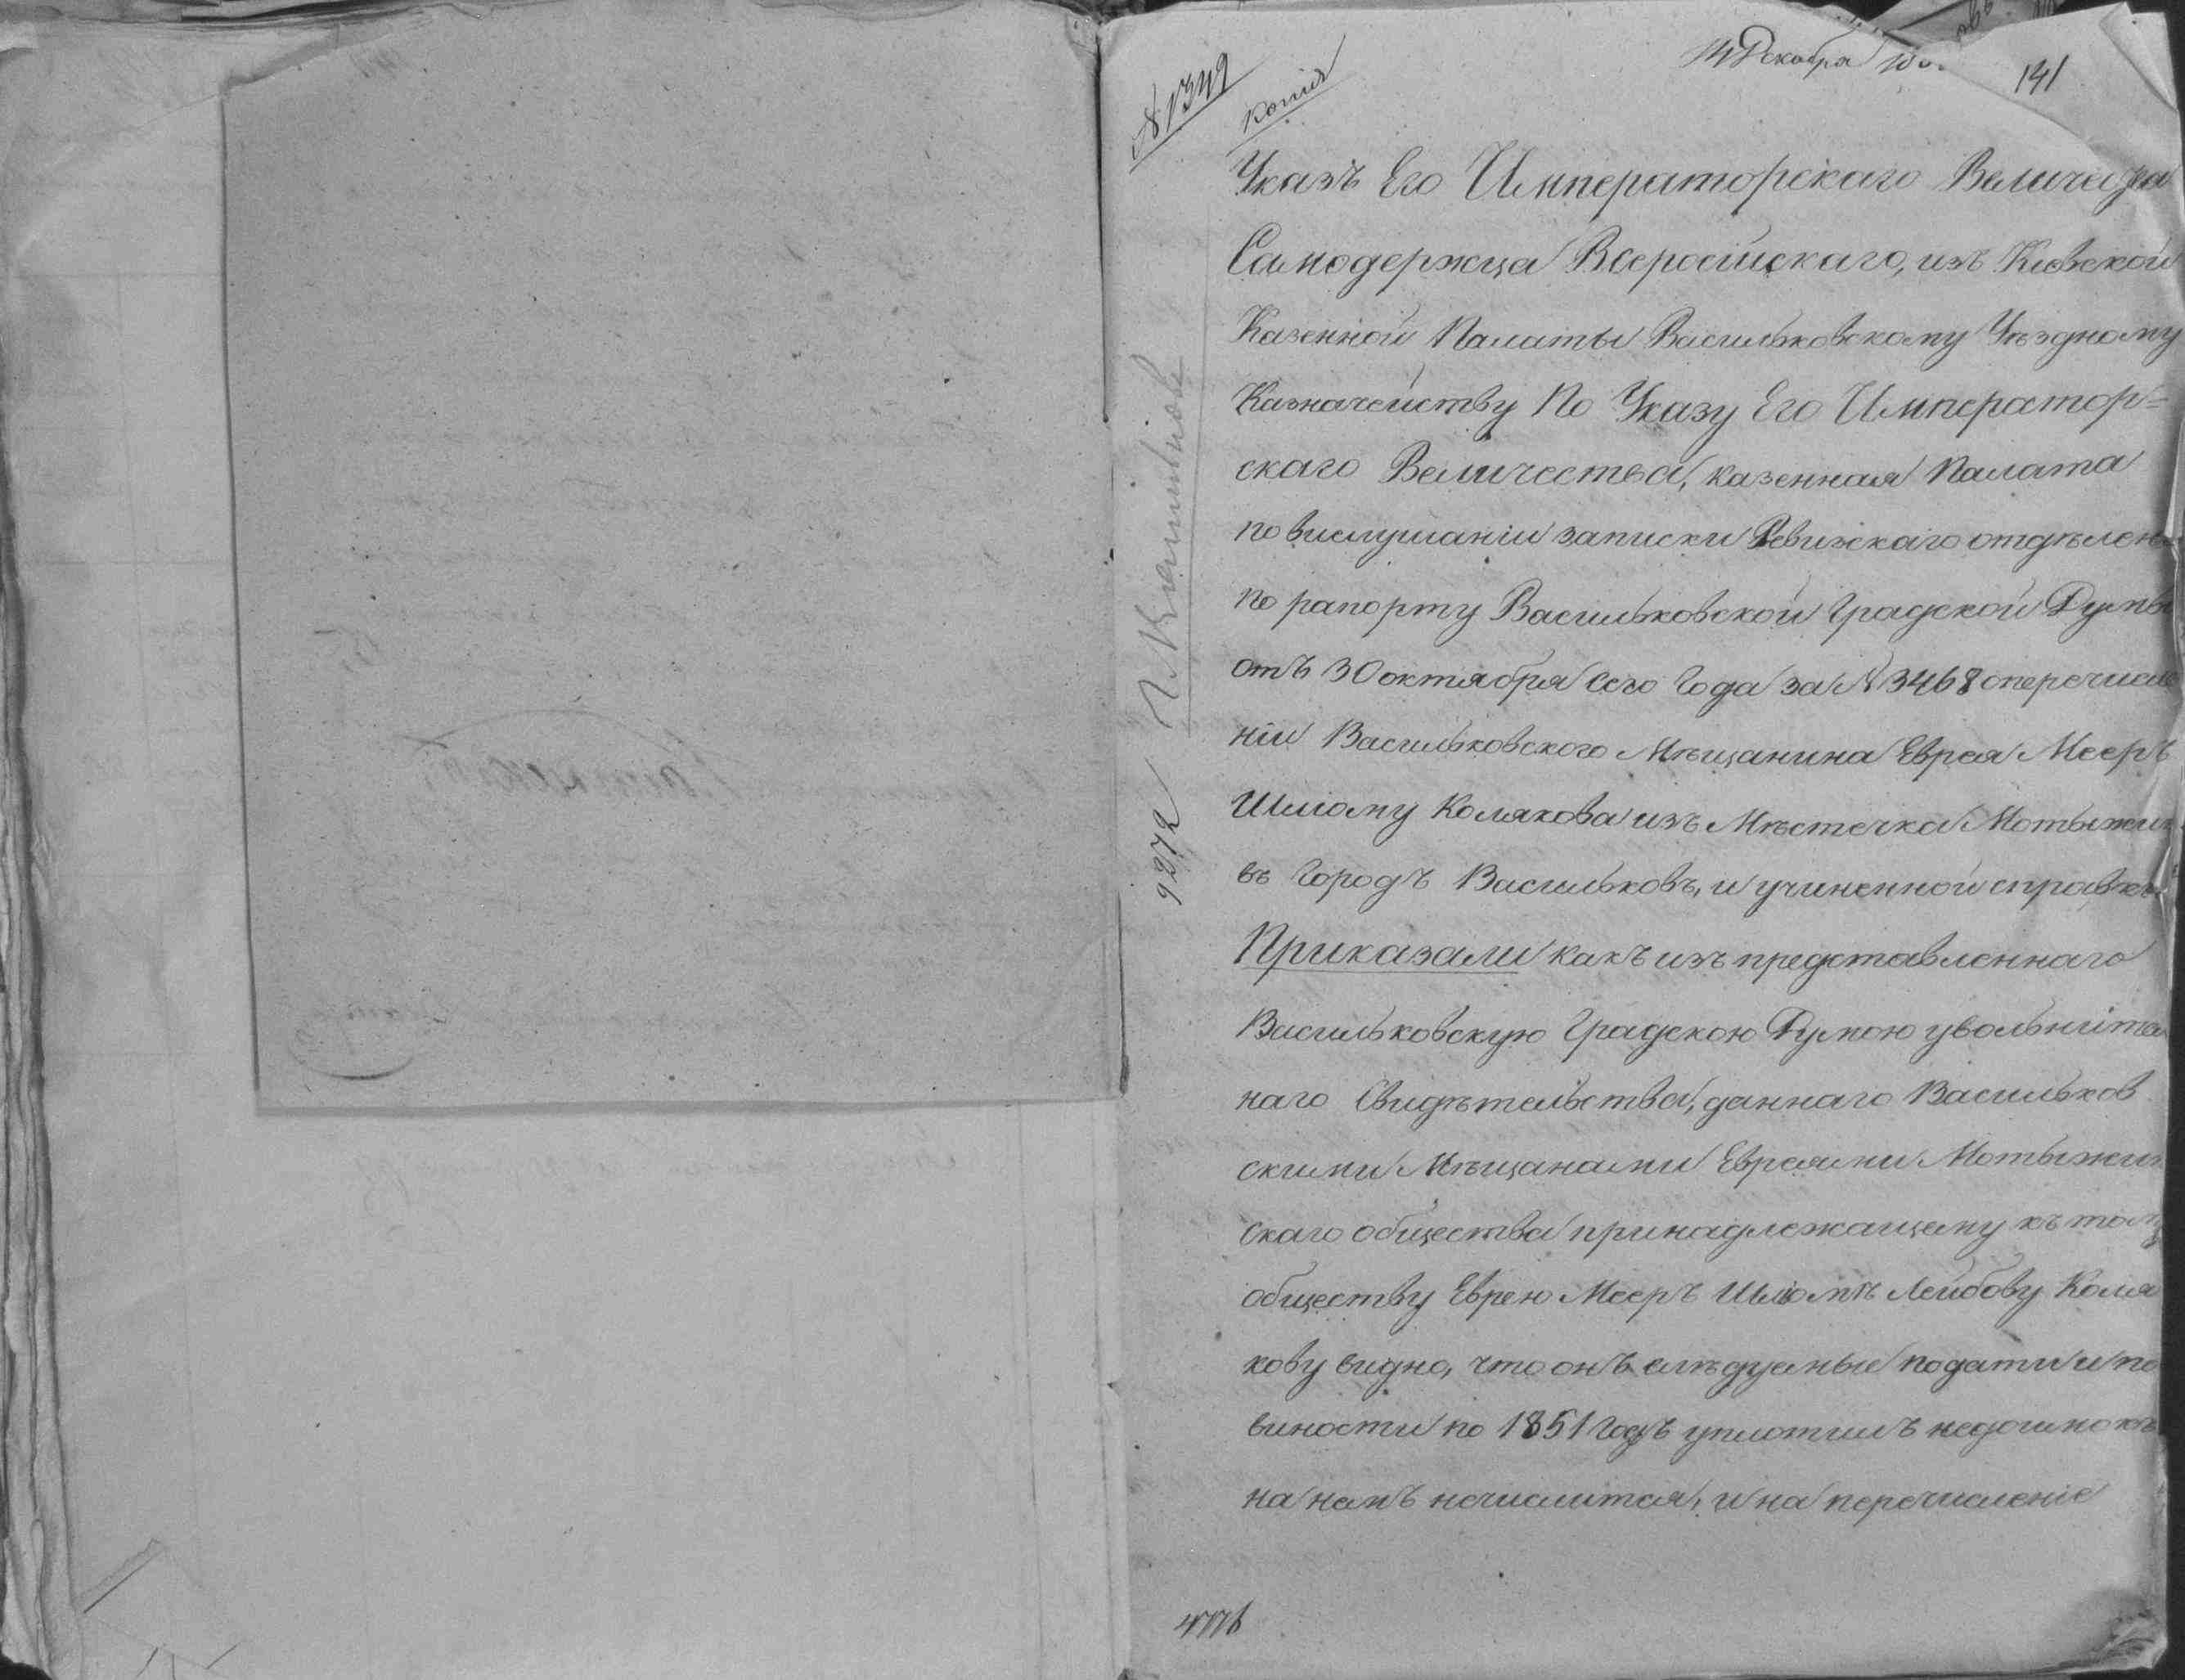 14 Декабря
141
№ 1349
Копія
Указъ Его Императорскаго Величества
Самодержца Всеросійскаго, изъ Кіевской
Казенной Палаты Васильковскому Уѣздному
Казначейству По Указу Его Император=
скаго Величества, казенная Палата
по выслушаніи записки Ревизскаго отдѣлен
по рапорту Васильковской Градской Думы
отъ 30 октября сего Года за № 3468 о перечисле
ніи Васильковского Мѣщанина Еврея Меръ
Шлиому Колякова изъ Мѣстечка Мотыжин
въ Городъ Васильковъ, и учиненной справкѣ
Приказали какъ изъ представленнаго
Васильковскую Градскою Думою увольните
наго Свидѣтельства, даннаго Васильков
скими Мѣщанами Евреями Мотыжин
скаго общества принадлежащему къ тому
обществу Еврею Мееръ Шліомѣ Лейбову Коля
кову видно, что онъ слѣдуемые подати и по
виности по 1851 Годъ уплотилъ недоимокъ
на немъ нечислится, и на перечисленіе
9272